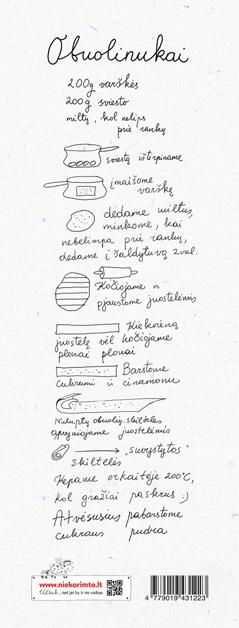 Obuolinukai
200g varškės
200g sviesto
miltų, kol nelips
prie rankų
sviestą ištirpiname
įmaišome
varškę
dedame miltus,
minkome, kai
nebelimpa prie rankų,
dedame į šaldytuvą 2val.
Kočiojame ir
pjaustome juostelėmis
Kiekvieną
juostelę vėl kočiojame
plonai plonai
Barstome
cukrumi ir cinamonu
Nuluptų obuolių skilteles
apvyniojame juostelėmis
"suvystytos"
skiltelės
Kepame orkaitėje 200°C,
kol gražiai paskrus :)
Atvėsusius pabarstome
cukraus pudra
www.niekorimto.lt
net jei tu ir ne vaikas
4 779019 431223